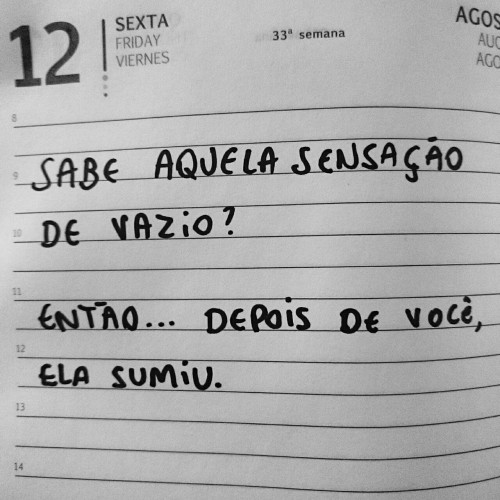 12
SEXTA
FRIDAY
VIERNES
33ª semana
AGOS
AUG
AGO
8
9
SABE AQUELA SENSAÇÃO
10
DE VAZIO?
11
ENTÃO... DEPOIS DE VOCÊ,
12
ELA SUMIU.
13
14